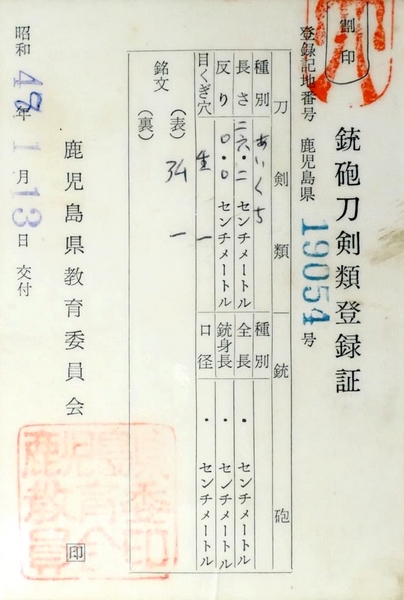 割印
銃砲刀剣類登録証
登録記号番号 鹿児島県 19054 号
刀剣類
種別 あいくち
長さ 二六・二 センチメートル
反り 〇・〇 センチメートル
目くぎ穴 生 一
銃砲
種別
全長 ・ センチメートル
銃身長 ・ センチメートル
口径 ・ センチメートル
銘文
(表)
(裏) 一
鹿児島県教育委員会 印
昭和 48 年 1 月 13 日 交付